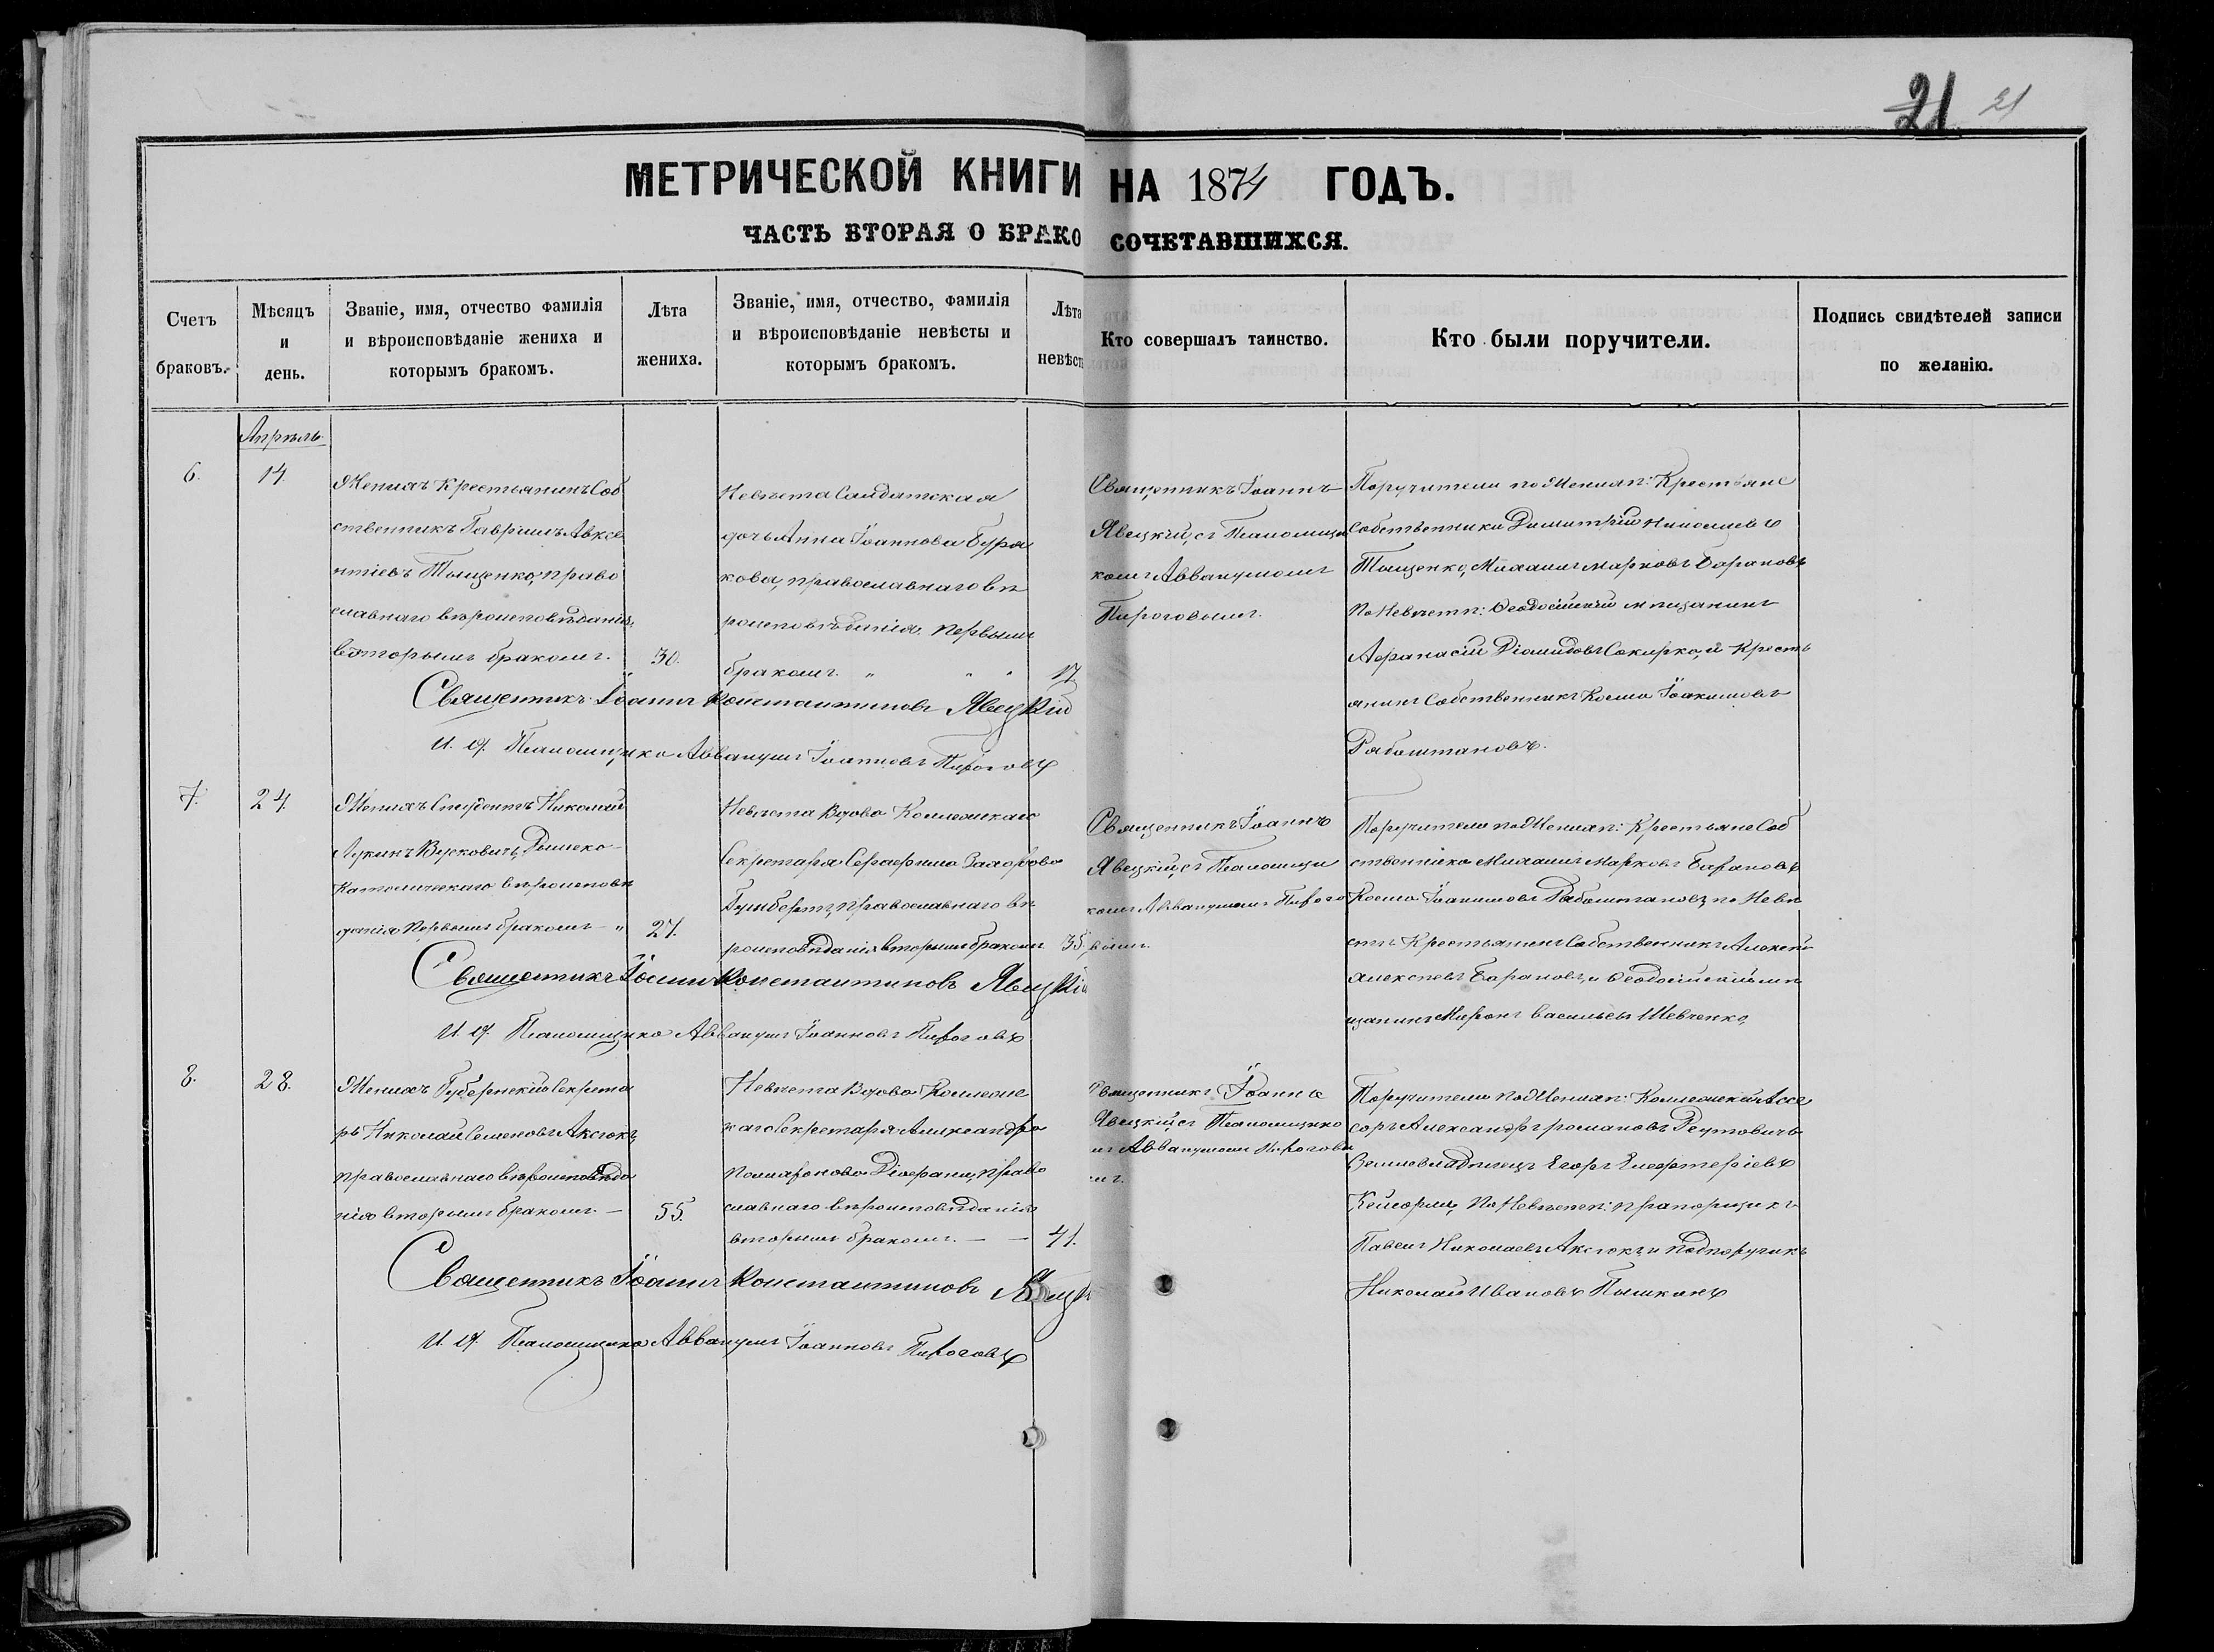 21 21
МЕТРИЧЕСКОЙ КНИГИ НА 1874 ГОДЪ.
ЧАСТЬ ВТОРАЯ О БРАКОСОЧЕТАВШИХСЯ.
Счетъ браковъ.
Мѣсяцъ и день.
Званіе, имя, отчество фамилія
и вѣроисповѣданіе жениха и
которымъ бракомъ.
Лѣта жениха.
Званіе, имя, отчество, фамилія
и вѣроисповѣданіе невѣсты и
которымъ бракомъ.
Лѣта невѣст
Кто совершалъ таинство.
Кто были поручители.
Подпись свидѣтелей записи
по желанію.
Апрѣль
6.
14.
Женихъ Крестьянинъ Соб
ственникъ Гавріилъ Авксе
нтіевъ Тыщенко, право
славнаго вѣроисповѣданія,
вторымъ бракомъ.
30.
Невѣста Солдатская
дочь Анна Іоаннова Бура
кова, православнаго вѣ
роисповѣданія. Первымъ
бракомъ. " " "
17
Священникъ Іоаннъ
Явецкій, съ Псаломщи
комъ Аввакумомъ
Пироговымъ.
Поручители по Женихѣ: Крестьяне
Собственники Димитрій
Тыщенко, Михаилъ Марковъ Барановъ
По Невѣстѣ: Ѳеодосійскій мѣщанинъ
Аѳанасій Діомидовъ Сокирко, и Кресть
янинъ Собственникъ Косма Іоакимовъ
Рабоштановъ.
Священникъ Іоаннъ Константиновъ Явецкій
И. д. Псаломщика Аввакумъ Іоанновъ Пироговъ
7.
24.
Женихъ Студентъ Николай
Лукинъ Вусковичъ, Римско-
Католическаго вѣроисповѣ
данія Первымъ бракомъ - "
27.
Невѣста Вдова Коллежскаго
Секретаря Серафима
Гумбертъ, православнаго вѣ
роисповѣданія вторымъ бракомъ
35.
Священникъ Іоаннъ
Явецкій, съ Псаломщи
комъ Аввакумомъ Пирого
вымъ.
Поручители по Женихѣ: Крестьяне Соб
ственники Михаилъ Марковъ Барановъ
Косма Іоакимовъ Рабоштановъ, по Невѣ
стѣ Крестьянинъ Собственникъ Алексѣй
Алексѣевъ Барановъ, и Ѳеодосійскій мѣ
щанинъ Миронъ Васильевъ Шевченко,
Священникъ Іоаннъ Константиновъ Явецкій
И. д. Псаломщика Аввакумъ Іоанновъ Пироговъ
8.
28.
Женихъ Губернскій Секрета
рь Николай Семеновъ Аксюкъ,
православнаго вѣроисповѣда
нія вторымъ бракомъ. -
55.
Невѣста Вдова Коллежс
каго Секретаря Александра
Діофани, право
славнаго вѣроисповѣданія
вторымъ бракомъ. - -
41.
Священникъ Іоаннъ
Явецкій съ Псаломщико
мъ Аввакумомъ Пирогов
ымъ.
Поручители по Женихѣ: Коллежскій Ассе
соръ Александръ Романовъ Реутовичъ
Землевладѣлецъ Егоръ Елефтеріевъ
По Невѣстѣ: прапорщикъ
Павелъ Николаевъ Аксюкъ и Подпоручикъ
Николай Ивановъ Пышкинъ
Священникъ Іоаннъ Константиновъ Явецк
И. д. Псаломщика Аввакумъ Іоанновъ Пироговъ